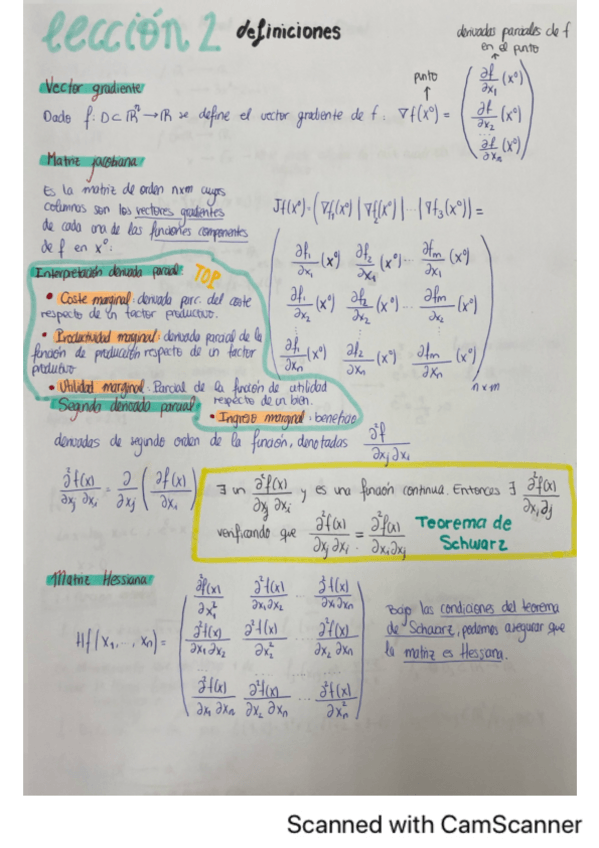 lección 2 definiciones
derivadas parciales de f
en el punto
Vector gradiente
punto
Dado f: D⊂ℝⁿ→ℝ se define el vector gradiente de f: ∇f(x⁰) = (∂f/∂x₁ (x⁰)
∂f/∂x₂ (x⁰)
∂f/∂xₙ (x⁰))
Matriz jacobiana
Es la matriz de orden nxm cuyas
columnas son los vectores gradientes
de cada una de las funciones componentes
de f en x⁰:
Jf(x⁰) = (∇f₁(x⁰) | ∇f₂(x⁰) | ... | ∇f₃(x⁰)) =
∂f₁/∂x₁ (x⁰) ∂f₂/∂x₁ (x⁰) ... ∂fm/∂x₁ (x⁰)
∂f₁/∂x₂ (x⁰) ∂f₂/∂x₂ (x⁰) ... ∂fm/∂x₂ (x⁰)
∂f₁/∂xₙ (x⁰) ∂f₂/∂xₙ (x⁰) ∂fm/∂xₙ (x⁰)
nxm
Interpretación derivada parcial: TOP
• Coste marginal: derivada parc. del coste
respecto de un factor productivo.
• Productividad marginal: derivada parcial de la
función de producción respecto de un factor
productivo
• Utilidad marginal: Parcial de la función de utilidad
respecto de un bien.
• Ingreso marginal: beneficio
Segunda derivada parcial
derivadas de segundo orden de la función, denotadas ∂²f/∂xj ∂xi
∂²f(x)/∂xj ∂xi = ∂/∂xj (∂f(x)/∂xi)
∃ un ∂²f(x)/∂xj ∂xi y es una función continua. Entonces ∃ ∂²f(x)/∂xi∂j
verificando que ∂²f(x)/∂xj ∂xi = ∂²f(x)/∂xi ∂xj Teorema de
Schwarz
Matriz Hessiana:
Hf(x₁, ..., xₙ) =
∂²f(x)/∂x₁² ∂²f(x)/∂x₁∂x₂ ... ∂²f(x)/∂x₁∂xₙ
∂²f(x)/∂x₁∂x₂ ∂²f(x)/∂x₂² ∂²f(x)/∂x₂ ∂xₙ
∂²f(x)/∂x₁ ∂xₙ ∂²f(x)/∂x₂ ∂xₙ ... ∂²f(x)/∂xₙ²
Bajo las condiciones del teorema
de Schwarz, podemos asegurar que
la matriz es Hessiana.
Scanned with CamScanner